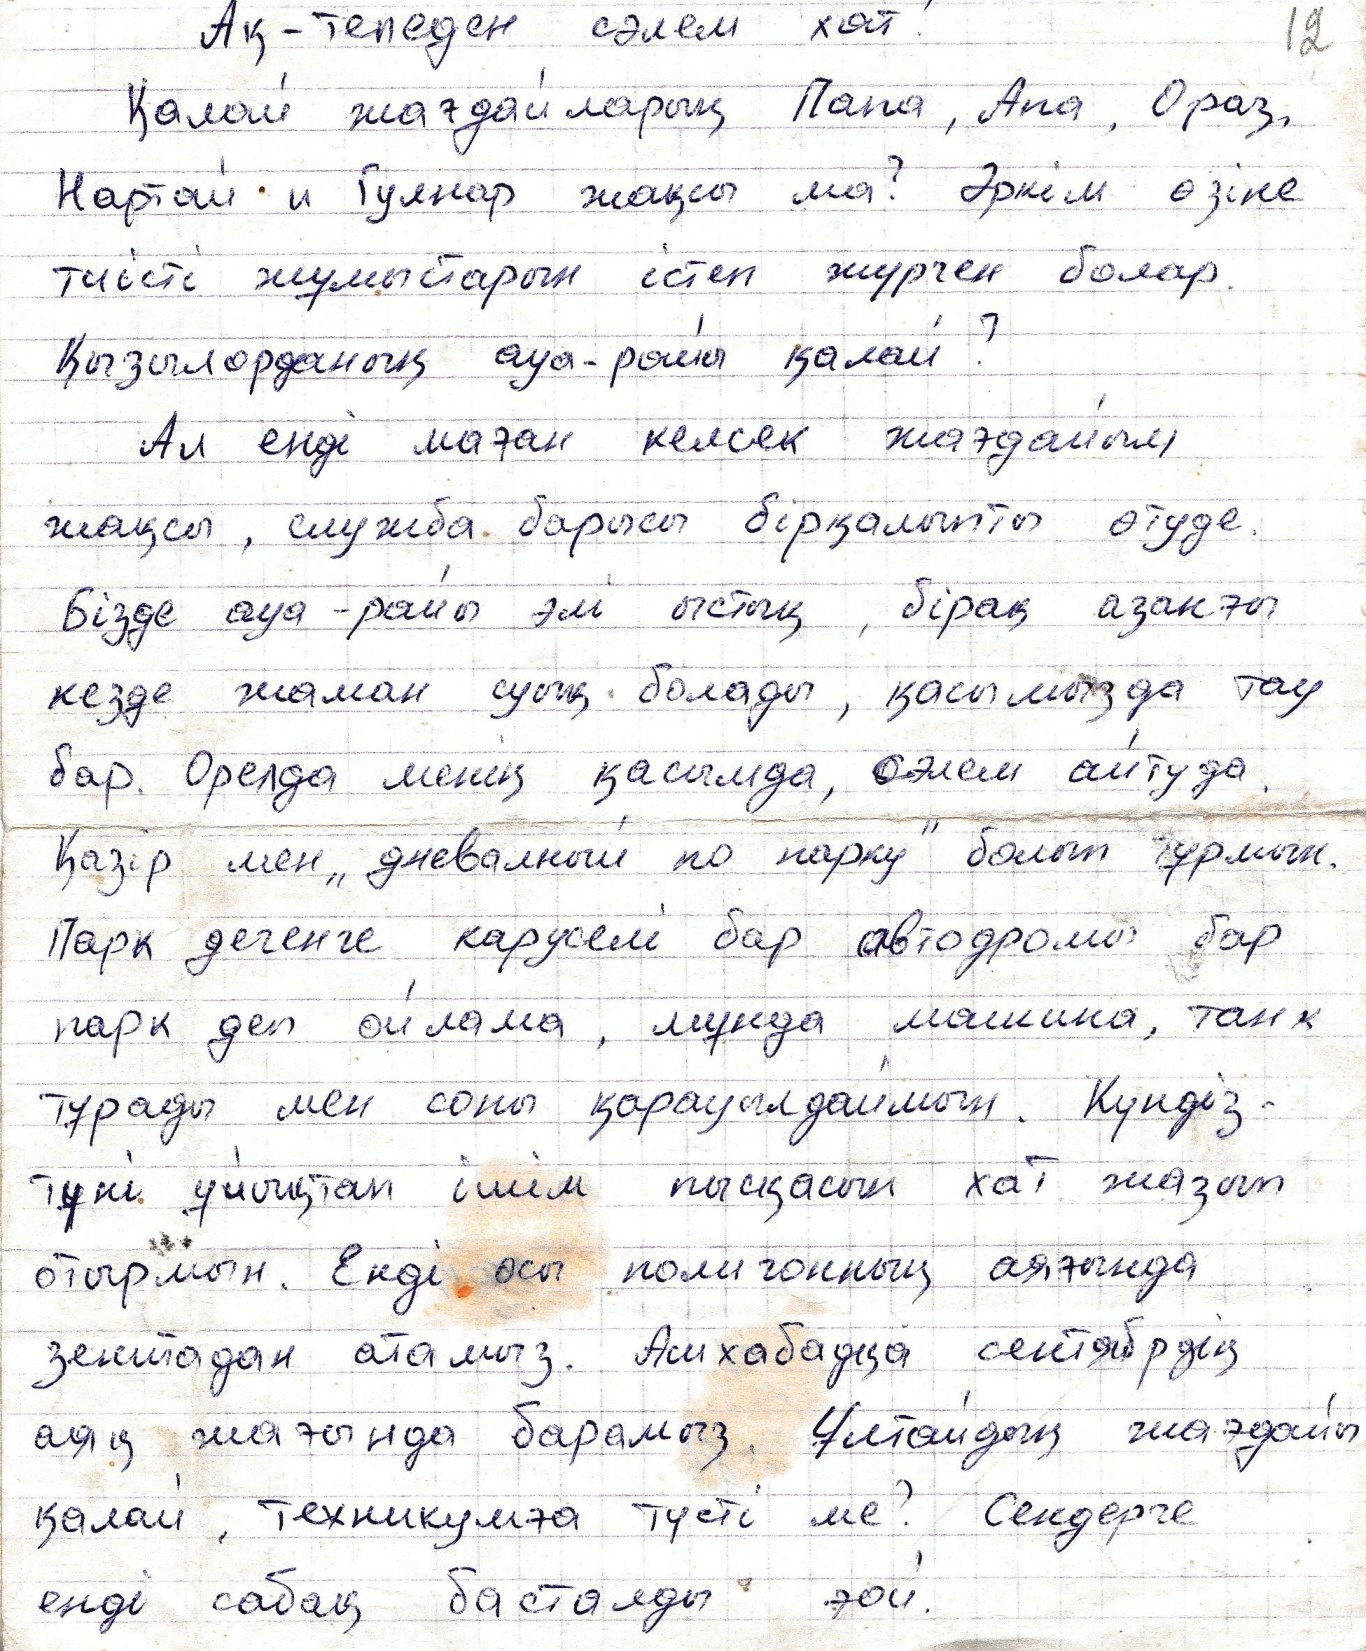 Ақ-тепеден сәлем хат!
12
Қалай жағдайларың Папа, Апа, Ораз,
Нартай и Гулнар жақсы ма? Әркім өзіне
тиісті жұмыстарын істеп жүрген болар.
Қызылорданың ауа-райы қалай?
Ал енді маған келсек жағдайым
жақсы, служба барысы бірқалыпты өтуде.
Бізде ауа-райы әлі ыстық, бірақ азанғы
кезде жаман суық болады, қасымызда тау
бар. Орелда менің қасымда, сәлем айтуда.
Қазір мен „дневалный по парку" болып тұрмын.
Парк дегенге каруселі бар автодромы бар
парк деп ойлама, мұнда машина, танк
тұрады мен соны қарауылдаймын. Күндіз-
түні ұйықтап ішім пысқасын хат жазып
отырмын. Енді осы полигонның аяғында
зениттадан атамыз. Ашхабадқа сентябрдің
аяқ жағында барамыз. Ұлтайдың жағдайы
қалай, техникумға түсті ме? Сендерге
енді сабақ басталды ғой.